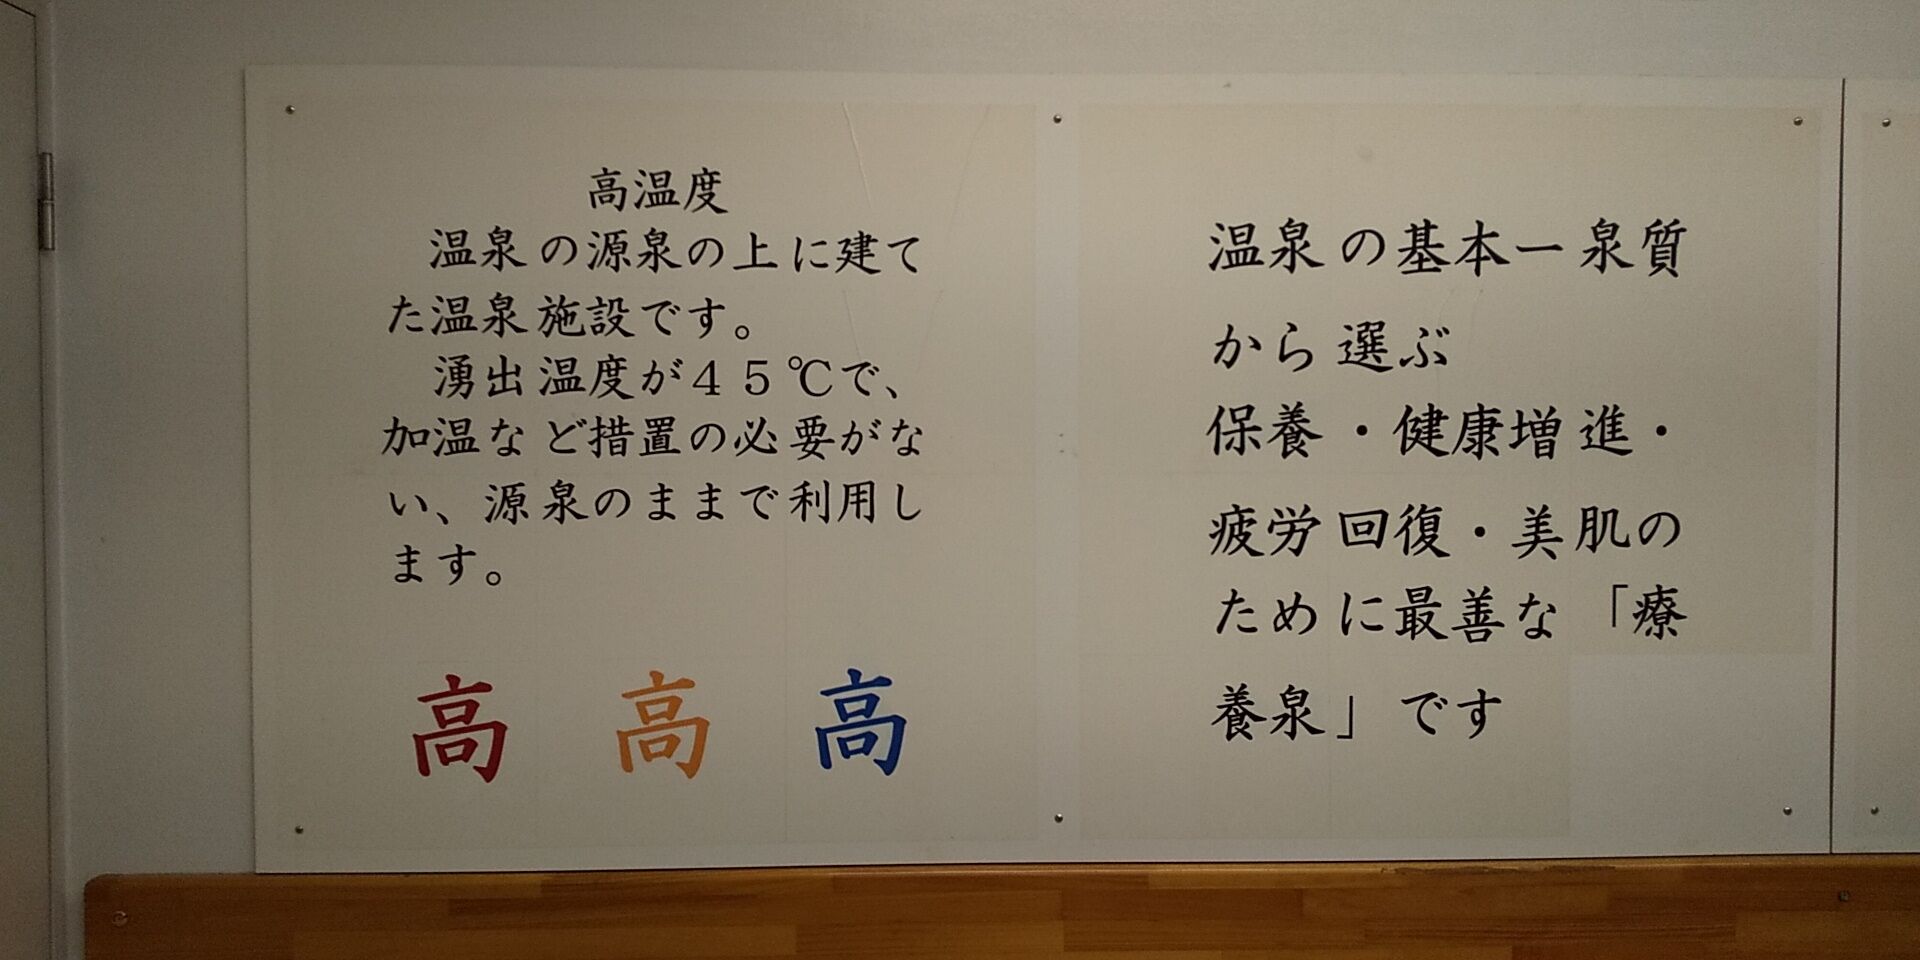 高温度
温泉の源泉の上に建て
た温泉施設です。
湧出温度が４５℃で、
加温など措置の必要がな
い、源泉のままで利用し
ます。
高 高 高
温泉の基本ー泉質
から選ぶ
保養・健康増進・
疲労回復・美肌の
ために最善な「療
養泉」です